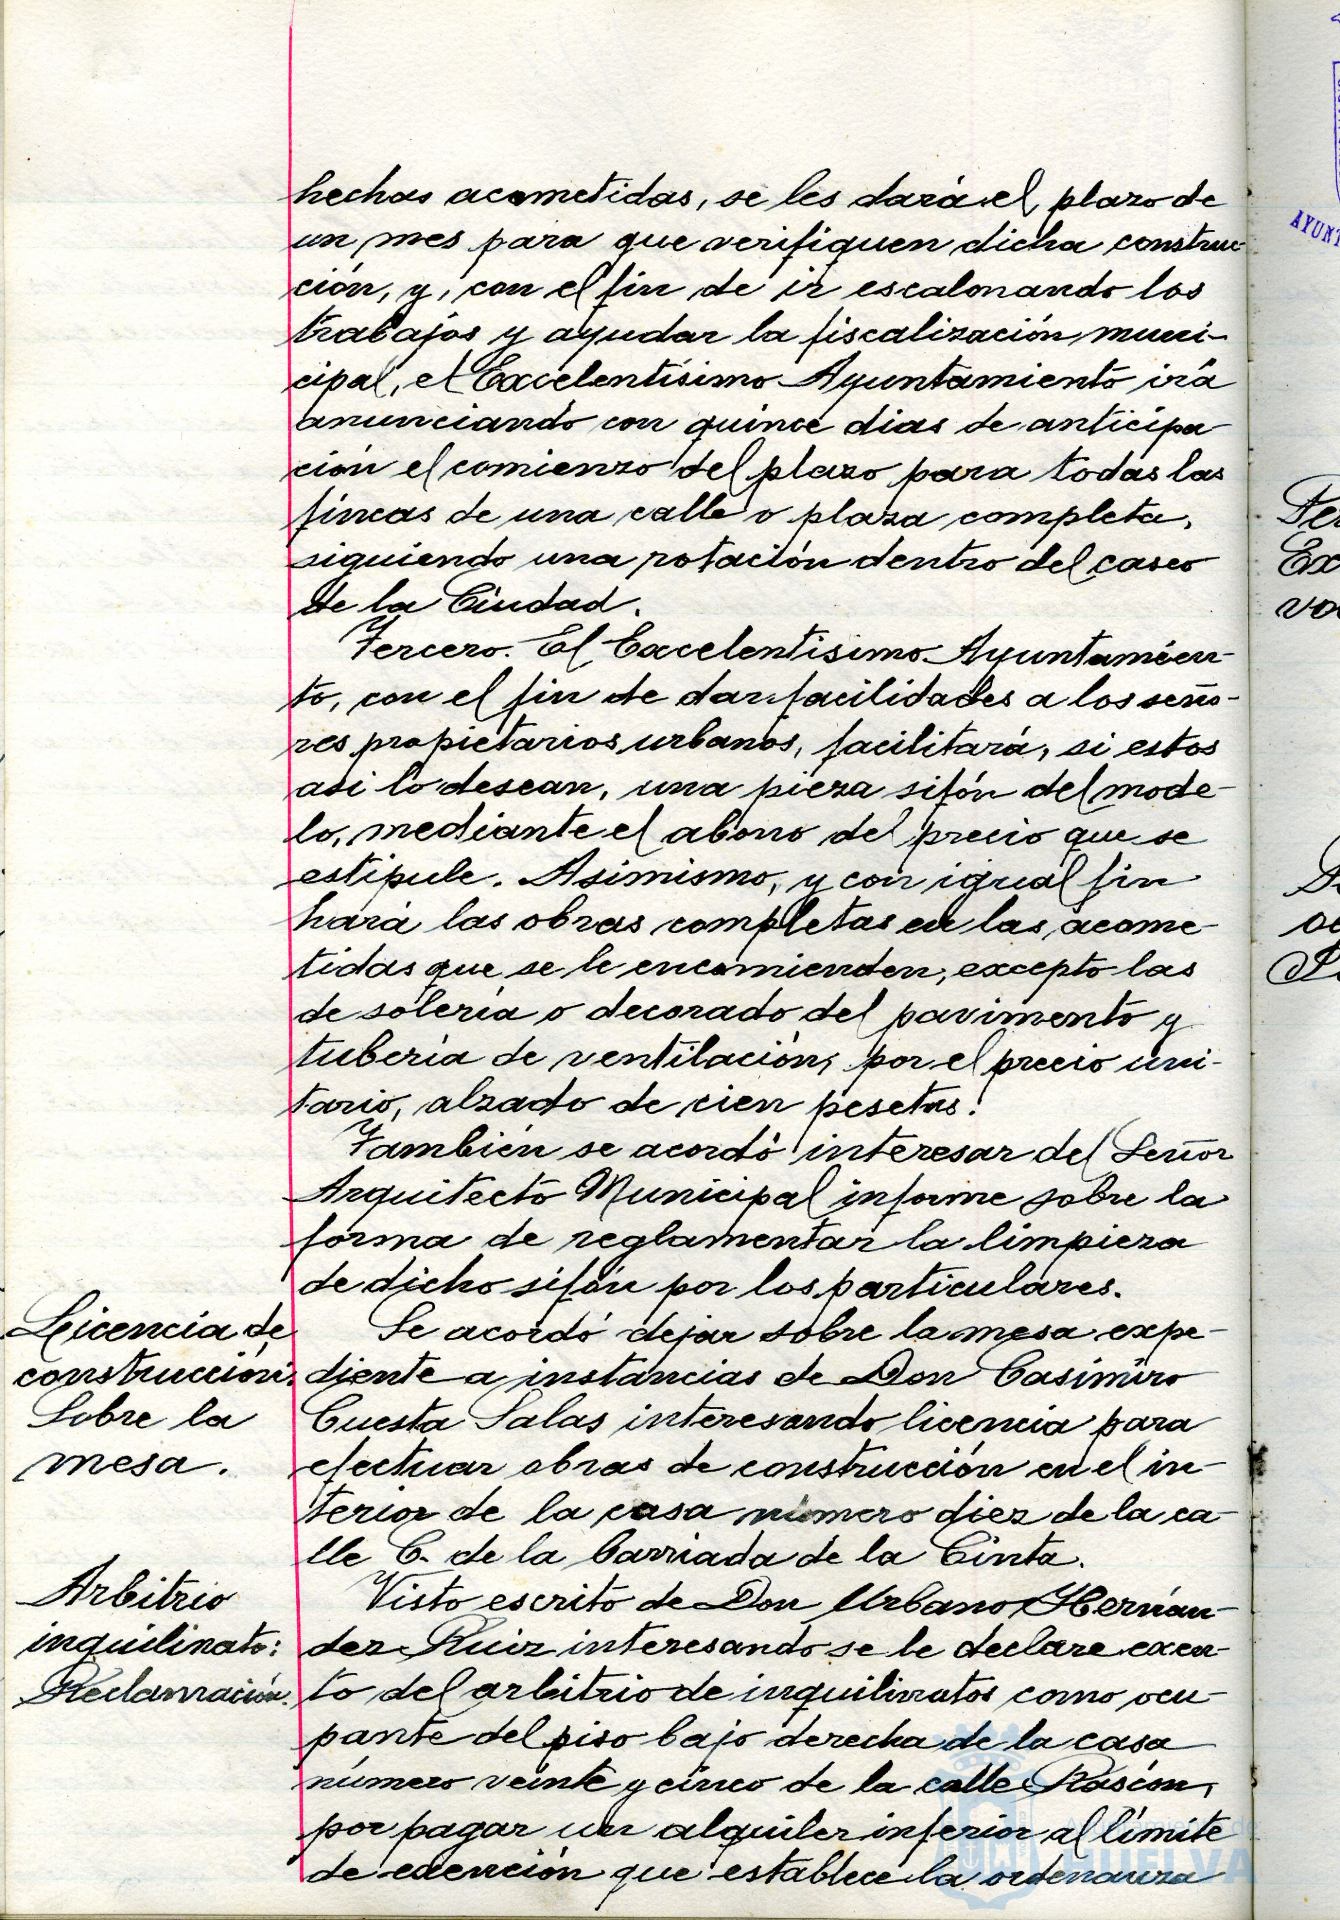 hechas acometidas, se les dará el plazo de
un mes para que verifiquen dicha construc-
ción, y, con el fin de ir escalonando los
trabajos y ayudar la fiscalización muni-
cipal, el Excelentísimo Ayuntamiento irá
anunciando con quince dias de anticipa-
ción el comienzo del plazo para todas las
fincas de una calle o plaza completa,
siguiendo una rotación dentro del casco
de la Ciudad.
Tercero. El Excelentísimo Ayuntamien-
to, con el fin de dar facilidades a los seño-
res propietarios urbanos, facilitará, si estos
asi lo desean, una pieza sifón del mode-
lo, mediante el abono del precio que se
estipule. Asimismo, y con igual fin
hará las obras completas en las acome-
tidas que se le encomienden, excepto las
de solería o decorado del pavimento y
tubería de ventilación, por el precio uni-
tario, alzado de cien pesetas.
También se acordó interesar del Señor
Arquitecto Municipal informe sobre la
forma de reglamentar la limpieza
de dicho sifón por los particulares.
Licencia de
construcción.
Sobre la
mesa.
Se acordó dejar sobre la mesa expe-
diente a instancias de Don Casimiro
Cuesta Salas interesando licencia para
efectuar obras de construcción en el in-
terior de la casa número diez de la ca-
lle C. de la barriada de la Cinta.
Arbitrio
inquilinato:
Reclamación.
Visto escrito de Don Urbano Hernán-
dez Ruiz interesando se le declare exen-
to del arbitrio de inquilinatos como ocu-
pante del piso bajo derecha de la casa
número veinte y cinco de la calle Rascón,
por pagar un alquiler inferior al límite
de exención que establece la ordenanza
Ayuntamiento de
HUELVA